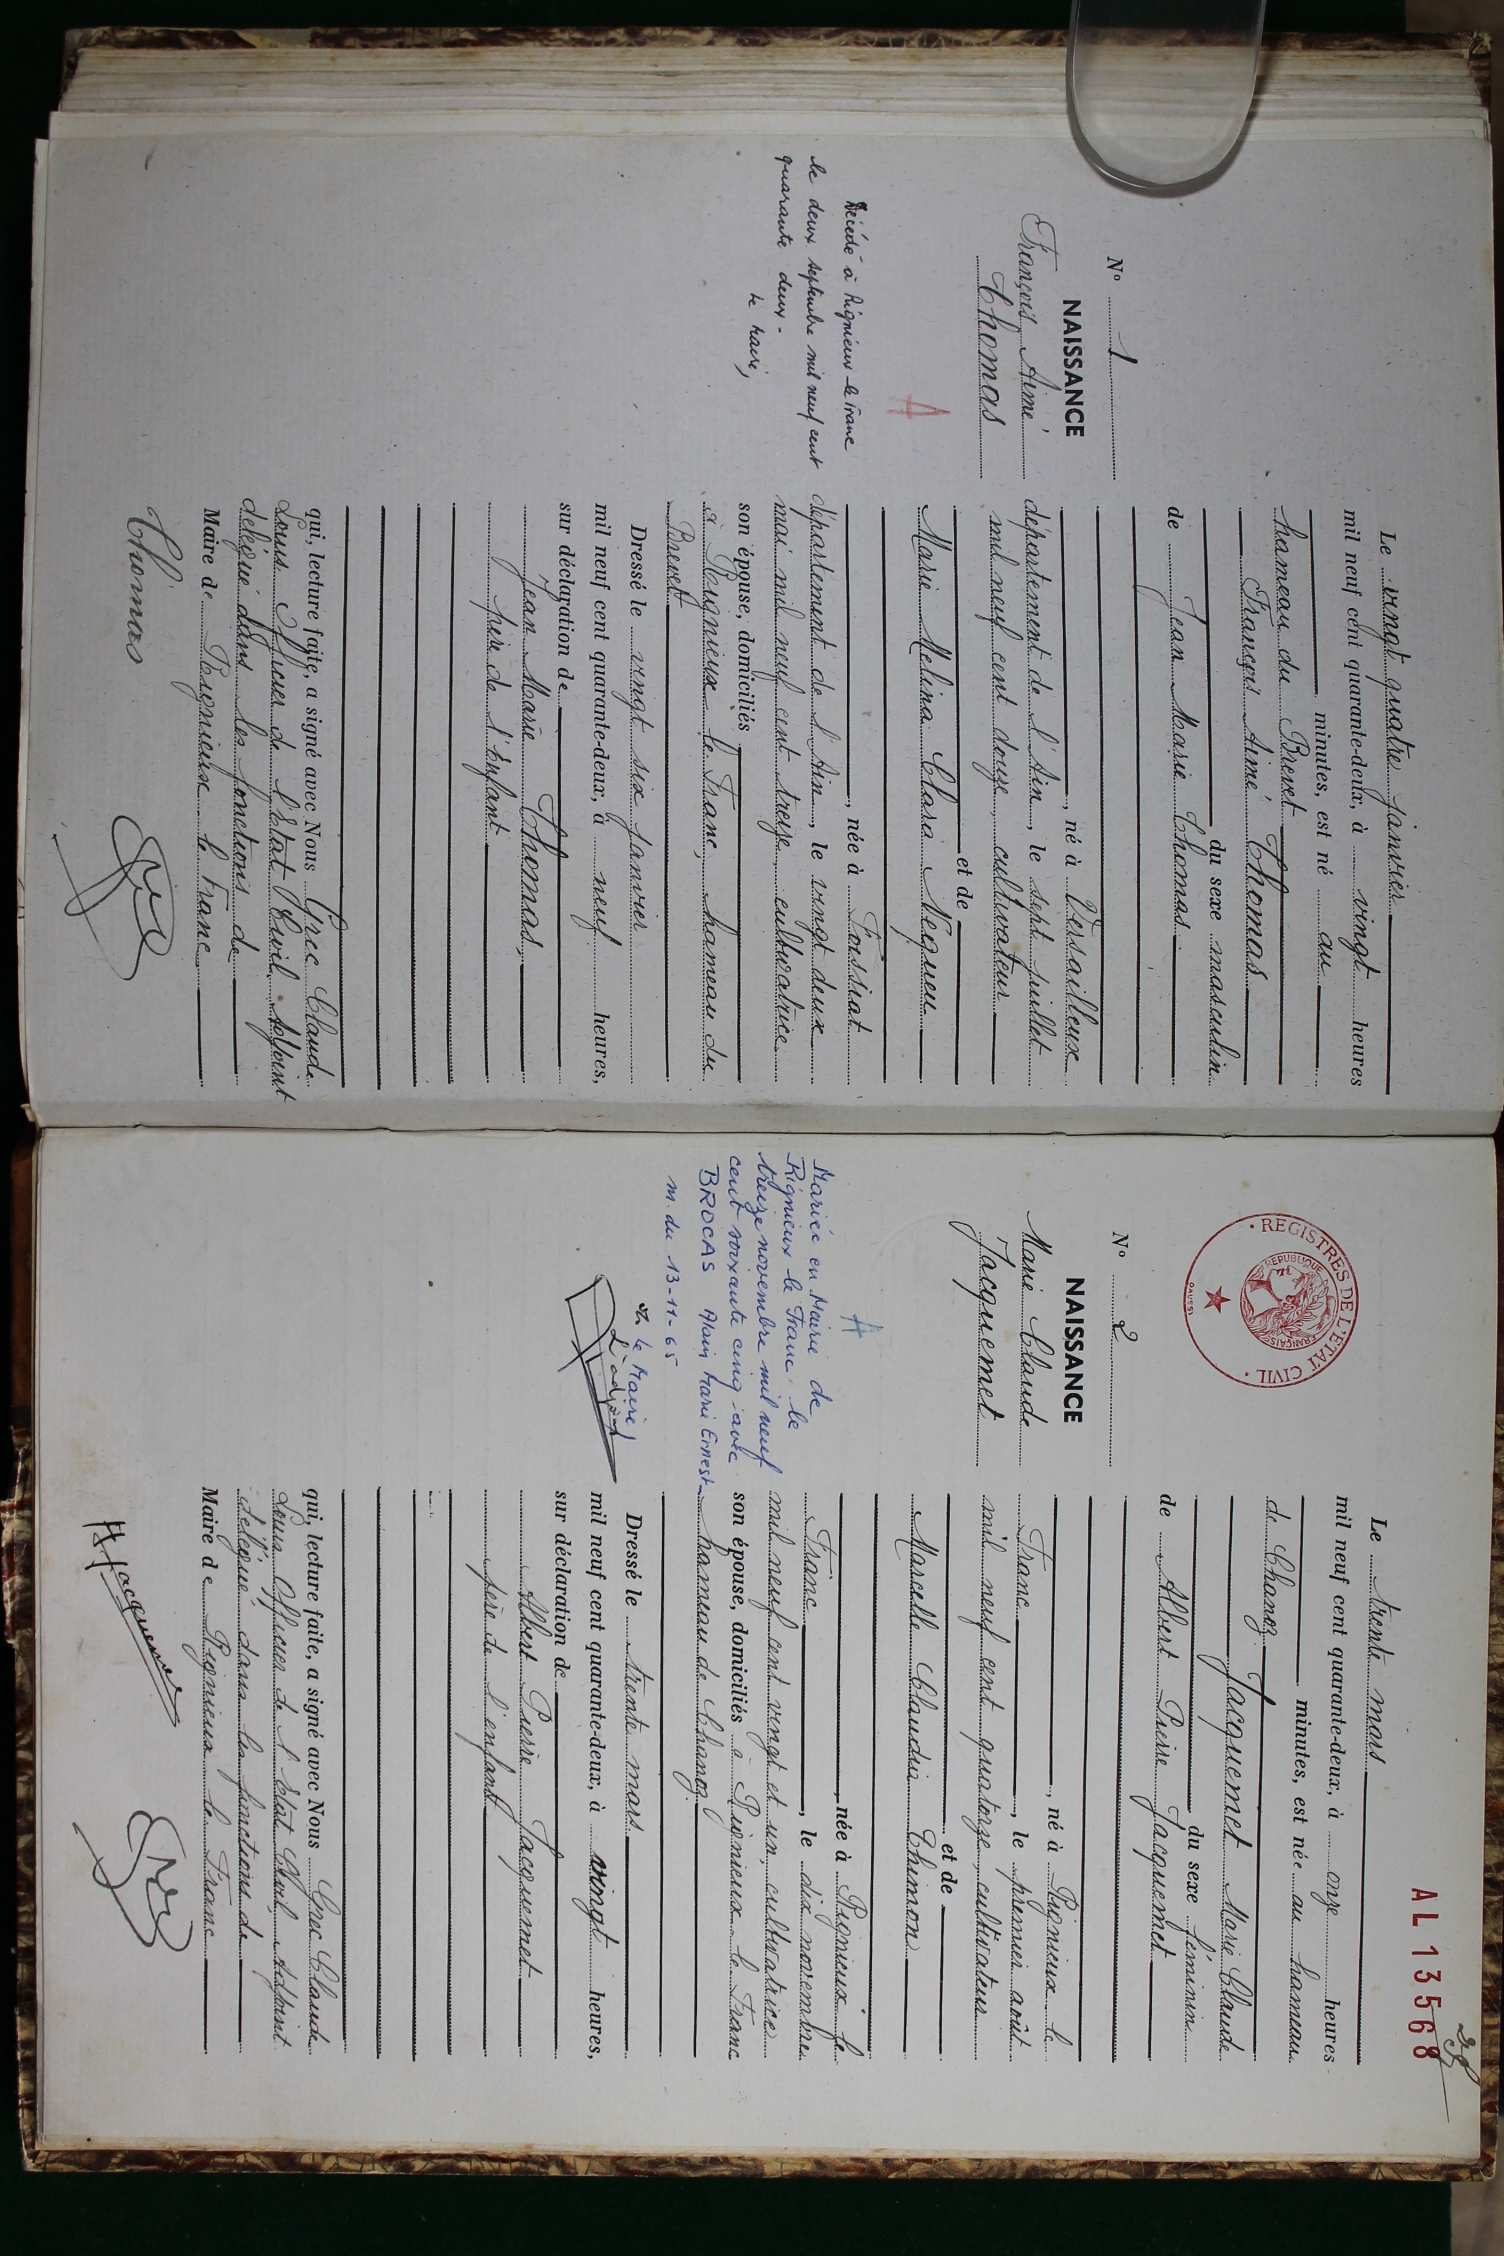 N° 1
NAISSANCE
François Aimé
Thomas
A
Décédé à Rignieux-le-Franc
le deux septembre mil neuf cent
quarante deux -
le Maire,
Le vingt quatre janvier
mil neuf cent quarante-deux, à vingt heures
minutes, est né au
hameau du Brevet
François Aimé Thomas
du sexe masculin
de Jean Marie Thomas
, né à Versailleux
département de l'Ain, le sept juillet
mil neuf cent douze, cultivateur
et de
Marie Melina Clara Nequeu
, née à Foissiat
département de l'Ain, le vingt deux
mai mil neuf cent treize, cultivatrice
son épouse, domiciliés
à Rignieux le Franc, hameau du
Brevet
Dressé le vingt six janvier
mil neuf cent quarante-deux, à neuf heures,
sur déclaration de
Jean Marie Thomas,
père de l'enfant
qui, lecture faite, a signé avec Nous Grec Claude
Louis Officier de l'Etat Civil Adjoint
délégué dans les fonctions de
Maire de Rignieux le Franc
Thomas
REGISTRES DE L'ETAT CIVIL
REPUBLIQUE FRANÇAISE
N° 2
NAISSANCE
Marie Claude
Jacquemet
A
Mariée en Mairie de
Rignieux le Franc le
treize novembre mil neuf
cent soixante cinq avec
BROCAS Alain Marie Ernest
m. du 13-11-65
le Maire,
L'adjoint
AL 13568
Le trente mars
mil neuf cent quarante-deux, à onze heures
minutes, est née au hameau
de Chanoz
Jacquemet Marie Claude
du sexe féminin
de Albert Pierre Jacquemet
, né à Rignieux le
Franc, le premier août
mil neuf cent quatorze, cultivateur
et de
Marcelle Claudia Thimon
, née à Rignieux le
Franc, le dix novembre
mil neuf cent vingt et un, cultivatrice
son épouse, domiciliés à Rignieux le Franc
hameau de Chanoz
Dressé le trente mars
mil neuf cent quarante-deux, à vingt heures,
sur déclaration de
Albert Pierre Jacquemet
père de l'enfant
qui, lecture faite, a signé avec Nous Grec Claude
Louis Officier de l'Etat Civil Adjoint
délégué dans les fonctions de
Maire de Rignieux le Franc
A Jacquemet